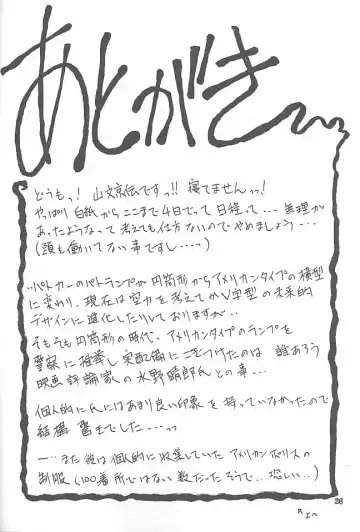 あとがき
どうもっ！山文京伝ですっ!! 寝てませんっっ！
やっぱり白紙からここまで4日でって日程って‥‥無理が
あったようなって考えても仕方ないのでやめましょう‥‥
(頭も働いてない事ですし‥‥)
‥パトカーのパトランプが円筒形からアメリカンタイプの横型
に変わり、現在は空力を考えてかV字型の未来的
デザインに進化したりしておりますが‥‥
そもそも円筒形の時代、アメリカンタイプのランプを
警察に推薦し実配備にこぎつけたのは誰あろう
映画評論家の水野晴郎氏との事‥‥
個人的に氏にはあまり良い印象を持っていなかったので
結構驚きでした‥‥っっ
‥‥また彼は個人的に収集していたアメリカンポリスの
制服(100着所ではない数だったそうで‥恐い‥‥)
26